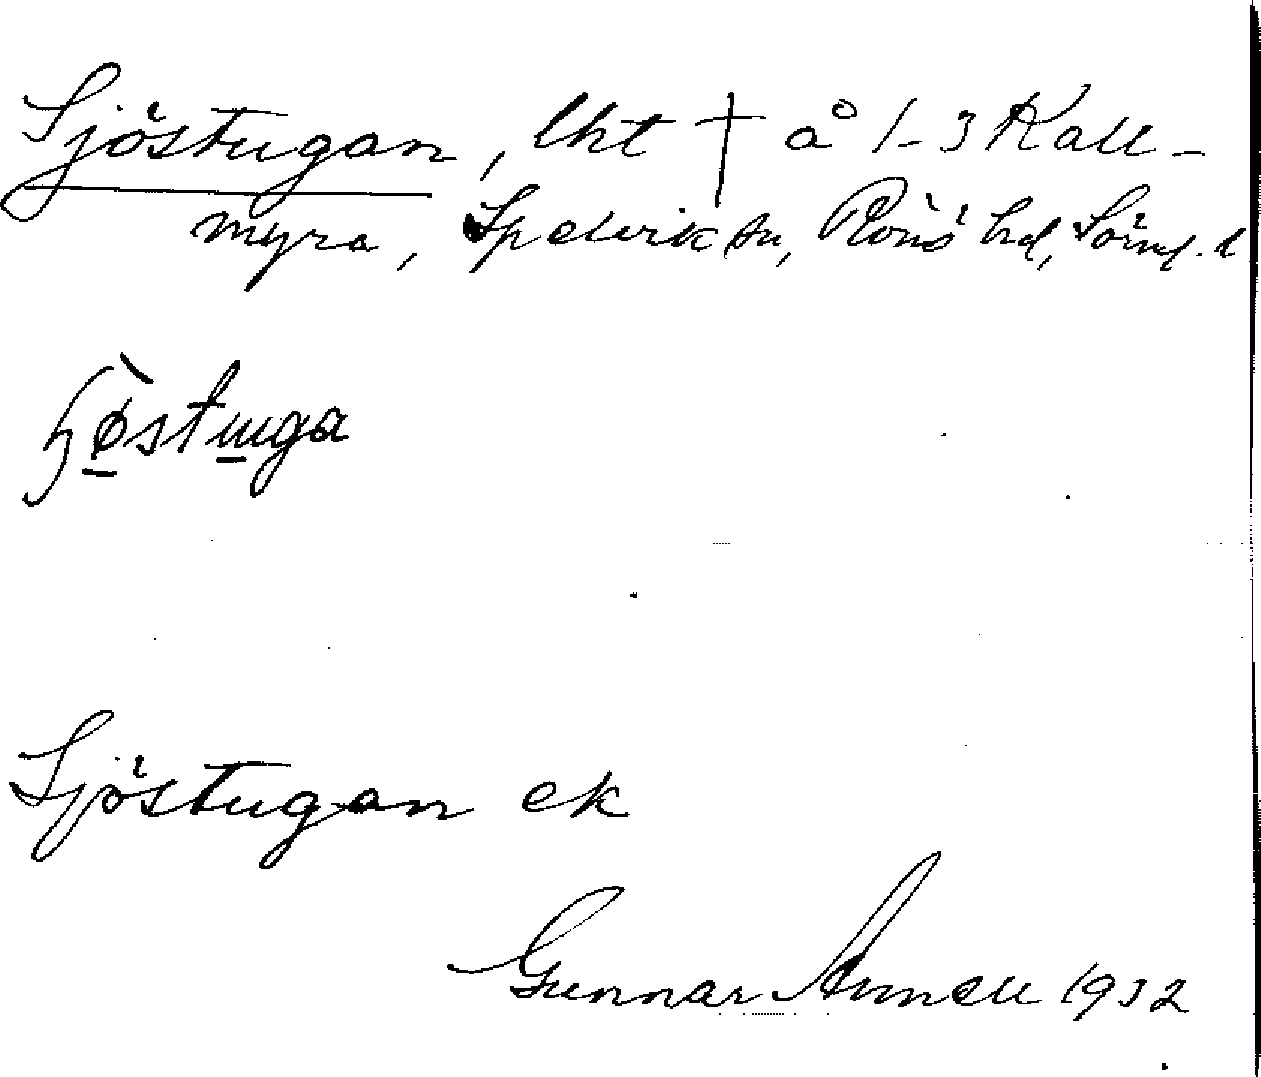 Sjöstugan, lht † å 1-3 Kall-
myra, Spelvik sn, Rönö hd, Sörml. l
Sjöstugan ek
Gunnar Annell 1932